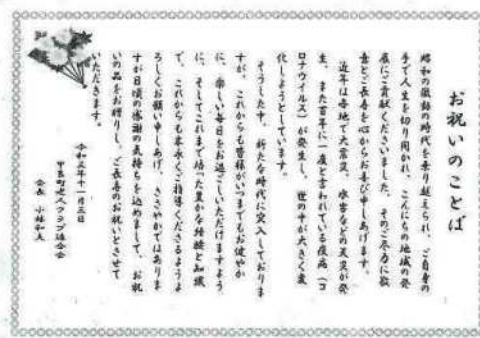 お祝いのことば
昭和の激動の時代を乗り越えられ、ご自身の
手で人生を切り開かれ、こんにちの地域の発
展にご貢献くださいました。そのご尽力に敬
意とご長寿を心からお喜び申しあげます。
近年は各地で大震災、水害などの天災が発
生、また百年に一度と言われている疫病(コ
ロナウイルス)が発生し、世の中が大きく変
化しようとしています。
そうした中、新たな時代に突入しておりま
すが、これからも皆様がいつまでもお健やか
に、楽しい毎日をお過ごしいただけますよう
に、そしてこれまで培った豊かな経験と知識
で、これからも末永くご指導くださるようよ
ろしくお願い申しあげ、ささやかではありま
すが日頃の感謝の気持ちを込めまして、お祝
いの品をお贈りし、ご長寿のお祝いとさせて
いただきます。
令和三年十一月三日
甲良町老人クラブ連合会
会長 小林和夫